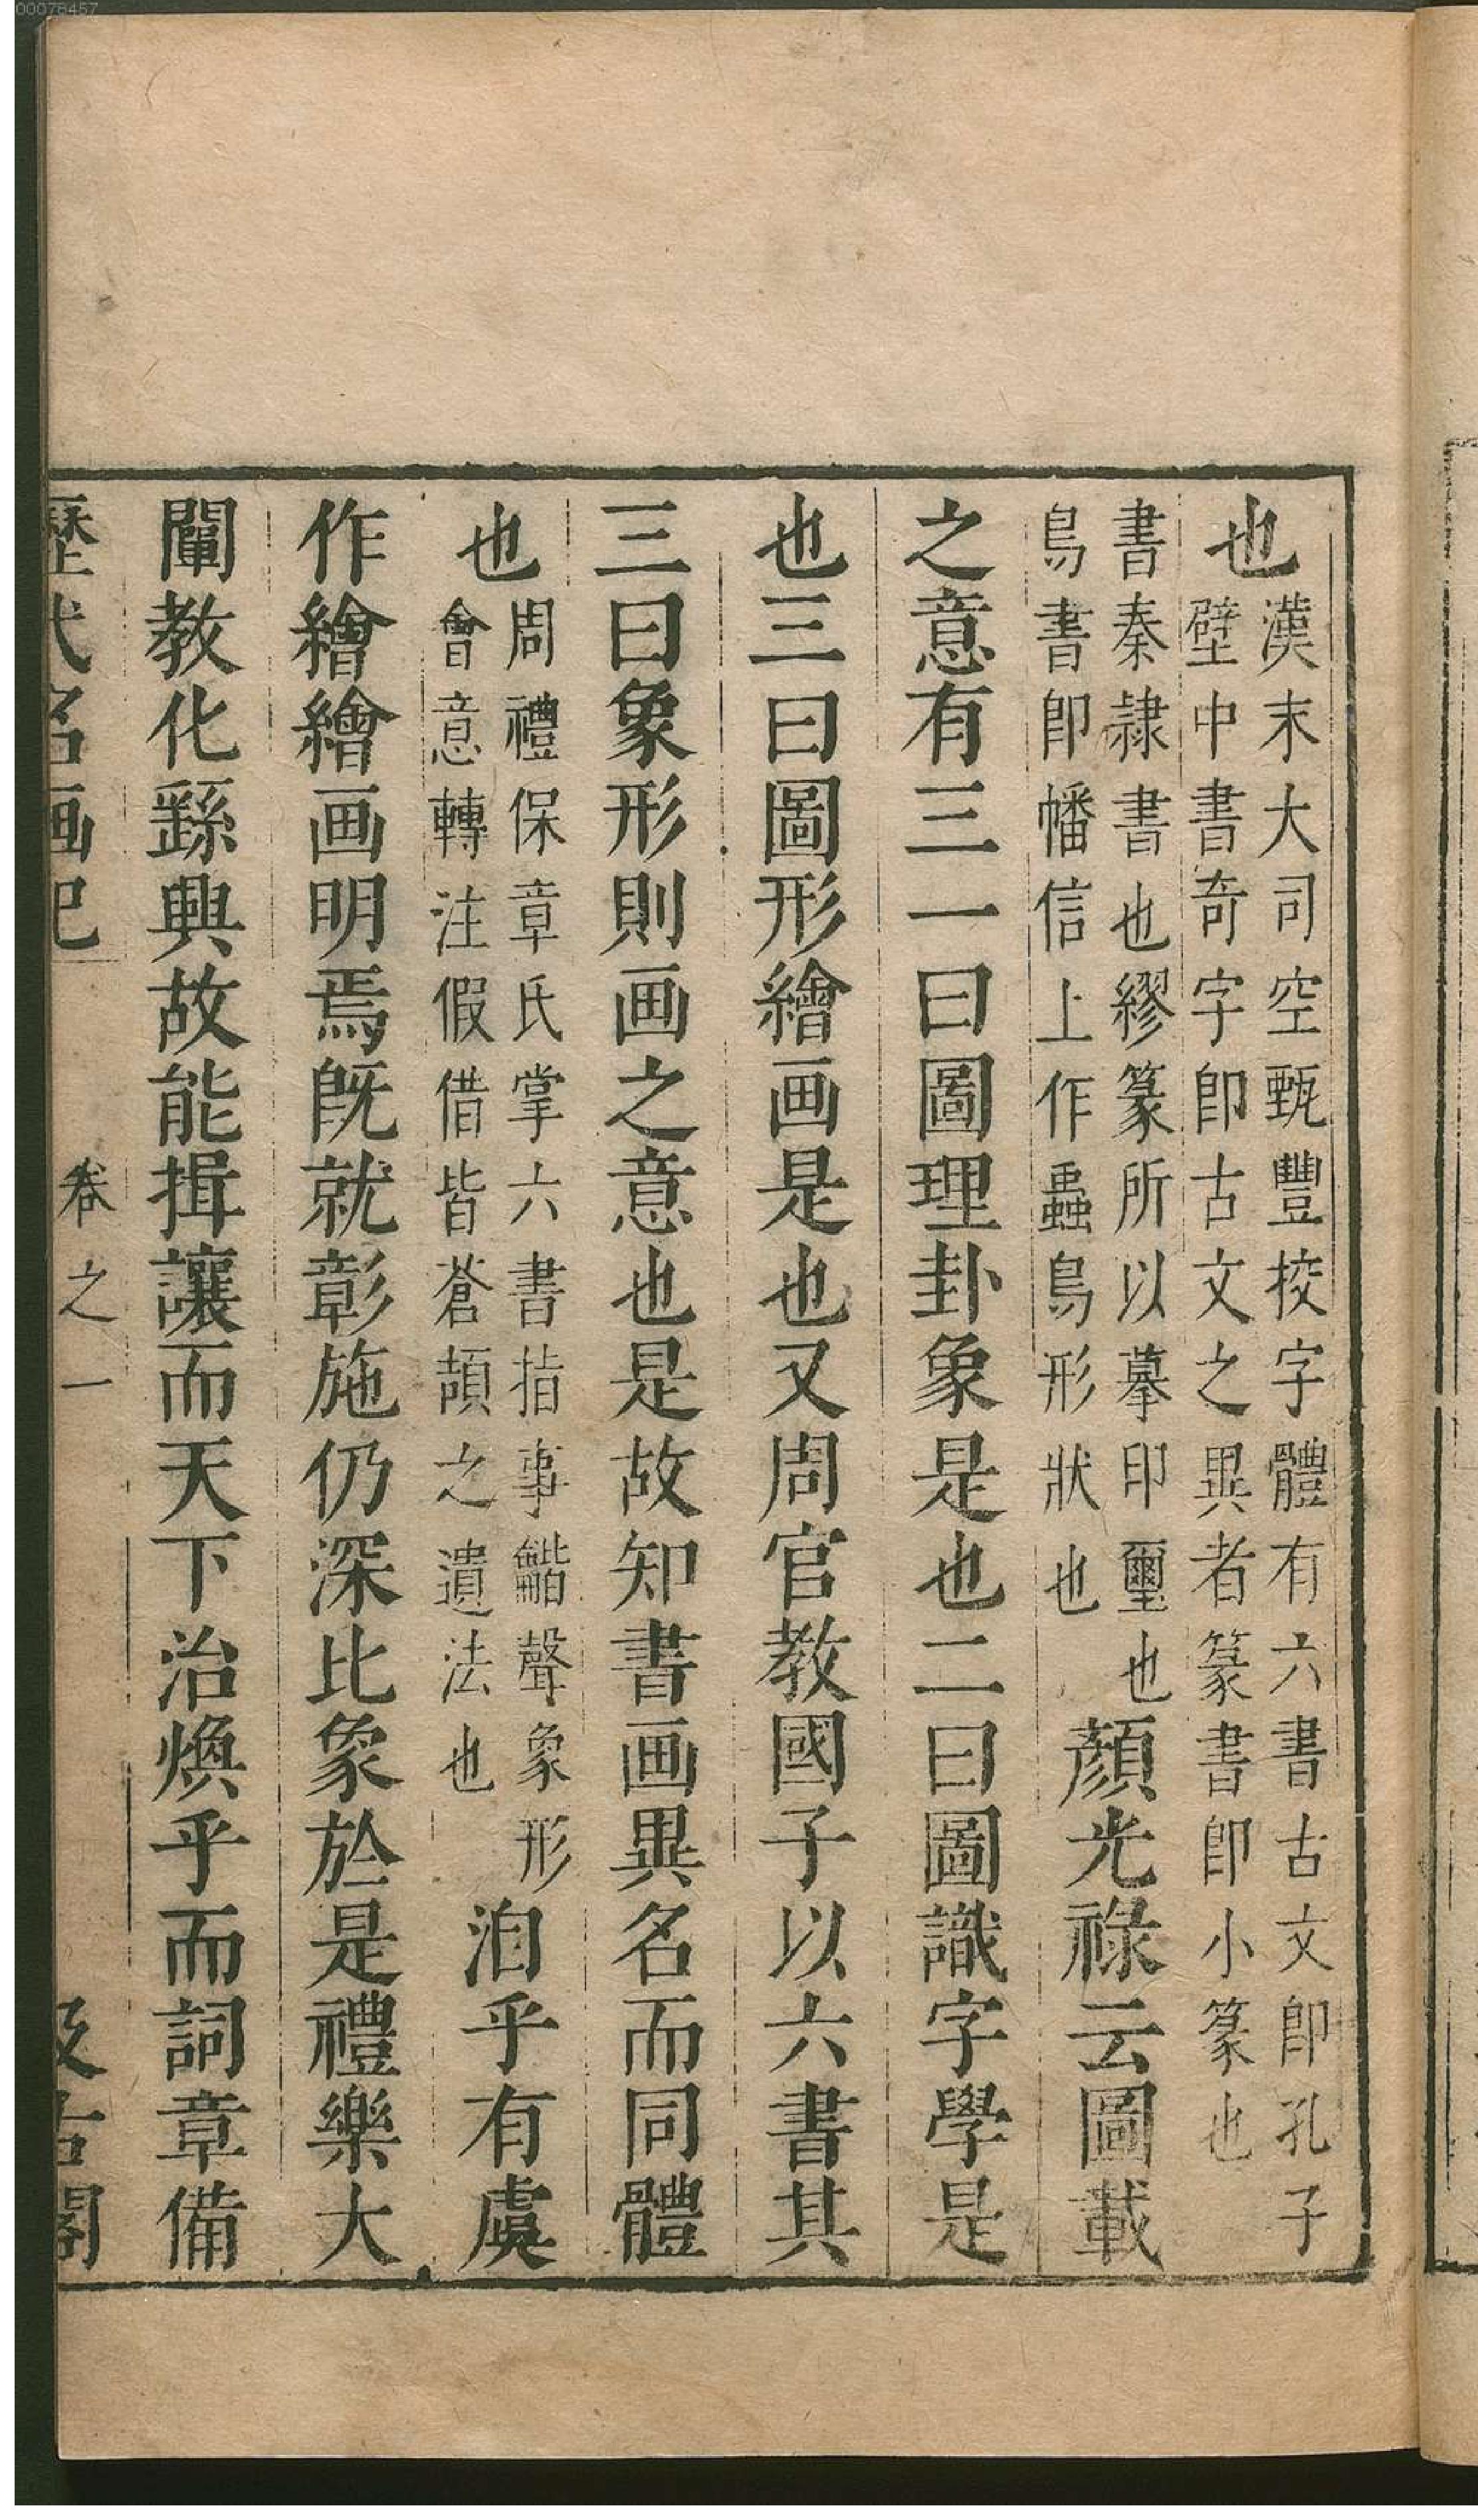 00078457
也漢末大司空甄豐挍字體有六書古文即孔子
壁中書奇字即古文之異者篆書即小篆也
書秦隷書也繆篆所以摹印璽也顏光祿云圖載
鳥書即幡信上作蟲鳥形狀也
之意有三一曰圖理卦象是也二曰圖識字學是
也三曰圖形繪画是也又周官教國子以六書其
三曰象形則画之意也是故知書画異名而同體
也周禮保章氏掌六書指事龤聲象形
會意轉注假借皆蒼頡之遺法也洎乎有虞
作繪繪画明焉既就彰施仍深比象於是禮樂大
闡教化繇興故能揖讓而天下治煥乎而詞章備
歷代名画記 卷之一 汲古閣